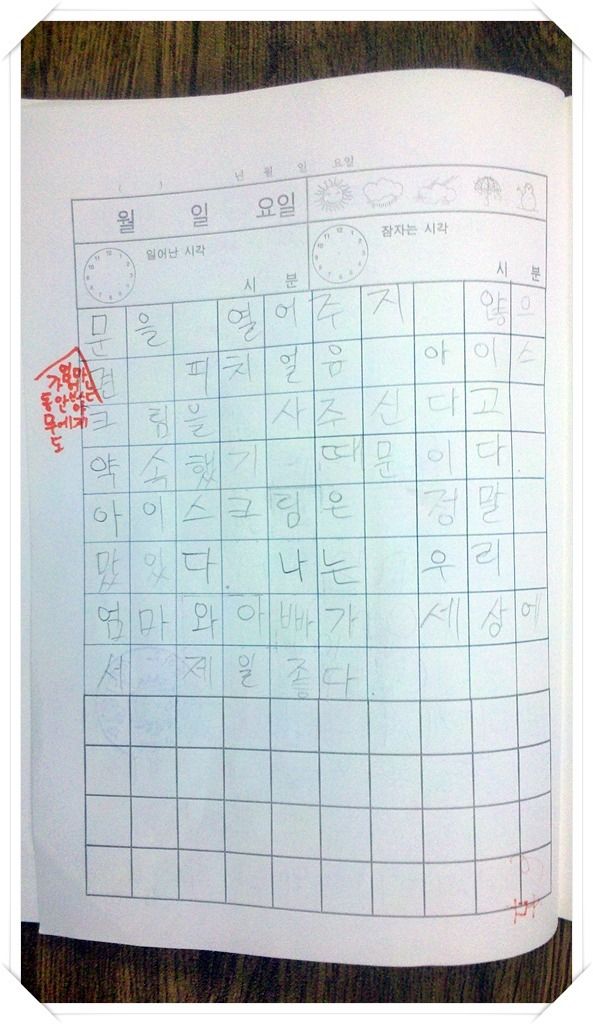 ( ) 년 월 일 요일
월 일 요일
일어난 시각 시 분
잠자는 시각 시 분
문을 열어주지 않으
면 피치얼음 아이스
크림을 사주신다고
약속했기 때문이다.
아이스크림은 정말
맜있다. 나는 우리
엄마와 아빠가 세상에
서 제일 좋다.